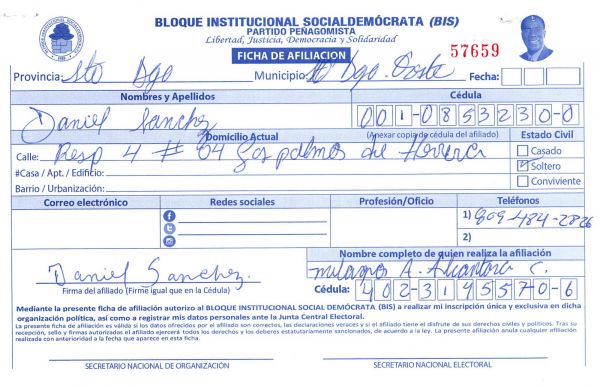 BLOQUE INSTITUCIONAL SOCIALDEMÓCRATA (BIS)
PARTIDO PEÑAGOMISTA
Libertad, Justicia, Democracia y Solidaridad
FICHA DE AFILIACION
57659
Provincia: Sto Dgo Municipio: Sto Dgo. Oeste Fecha:
Nombres y Apellidos Cédula
Daniel Sanchez 001-0853230-0
Domicilio Actual (Anexar copia de cédula del afiliado) Estado Civil
Calle: Resp 4 # 04 Las palmas de Herrera Casado
#Casa / Apt. / Edificio: Soltero
Barrio / Urbanización: Conviviente
Correo electrónico Redes sociales Profesión/Oficio Teléfonos
1) 809-484-2826
2)
Nombre completo de quien realiza la afiliación
Daniel Sanchez. milagros A. Alcantara C.
Firma del afiliado (Firme igual que en la Cédula) Cédula: 402-3195570-6
Mediante la presente ficha de afiliación autorizo al BLOQUE INSTITUCIONAL SOCIAL DEMÓCRATA (BIS) a realizar mi inscripción única y exclusiva en dicha
organización política, así como a registrar mis datos personales ante la Junta Central Electoral.
La presente ficha de afiliación es válida si los datos ofrecidos por el afiliado son correctos, las declaraciones veraces y si el afiliado tiene el disfrute de sus derechos civiles y políticos. Tras su
recepción, sello y firmas autorizadas el afiliado ejercerá todos los derechos y los deberes estatutariamente sancionados, de acuerdo a la ley. La presente afiliación anula cualquier afiliación
realizada con anterioridad a la fecha que aparece en esta ficha.
SECRETARIO NACIONAL DE ORGANIZACIÓN SECRETARIO NACIONAL ELECTORAL